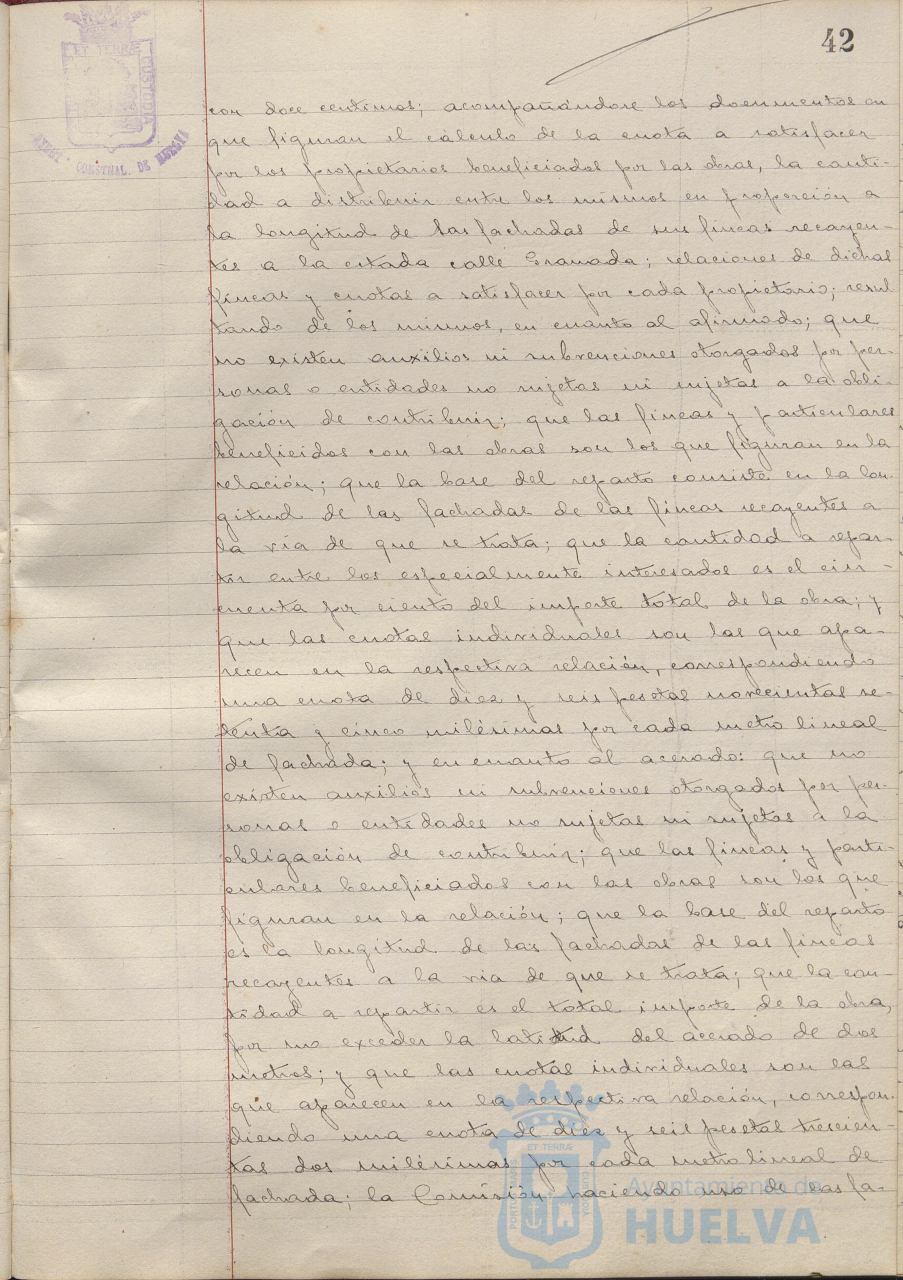 42
ET TERRÆ
CUSTODIA
AYUNT. CONSTNAL. DE HUELVA
con doce centimos; acompañándose los documentos en
que figuran el cálculo de la cuota a satisfacer
por los propietarios beneficiados por las obras, la canti-
dad a distribuir entre los mismos en proporción a
la longitud de las fachadas de sus fincas recayen-
tes a la citada calle Granada; relaciones de dichas
fincas y cuotas a satisfacer por cada propietario; resul
tando de los mismos, en cuanto al afirmado; que
no existen auxilios ni subvenciones otorgados por per-
sonas o entidades no sujetas ni sujetas a la obli-
gación de contribuir; que las fincas y particulares
beneficidos con las obras son los que figuran en la
relación; que la base del reparto consiste en la lon-
gitud de las fachadas de las fincas recayentes a
la vía de que se trata; que la cantidad a repar-
tir entre los especialmente interesados es el cin-
cuenta por ciento del importe total de la obra; y
que las cuotas individuales son las que apa-
recen en la respectiva relación, correspondiendo
una cuota de diez y seis pesetas novecientas se-
tenta y cinco milésimas por cada metro lineal
de fachada; y en cuanto al acerado: que no
existen auxilios ni subvenciones otorgados por per-
sonas o entidades no sujetas ni sujetas a la
obligación de contribuir; que las fincas y parti-
culares beneficiados con las obras son los que
figuran en la relación; que la base del reparto
es la longitud de las fachadas de las fincas
recayentes a la via de que se trata; que la can-
tidad a repartir es el total importe de la obra,
por no exceder la latitud del acerado de dos
metros; y que las cuotas individuales son las
que aparecen en la respectiva relación, correspon-
diendo una cuota de diez y seis pesetas trescien-
tas dos milésimas por cada metro lineal de
fachada; la Comisión haciendo uso de las fa-
ET TERRÆ
Ayuntamiento de
HUELVA